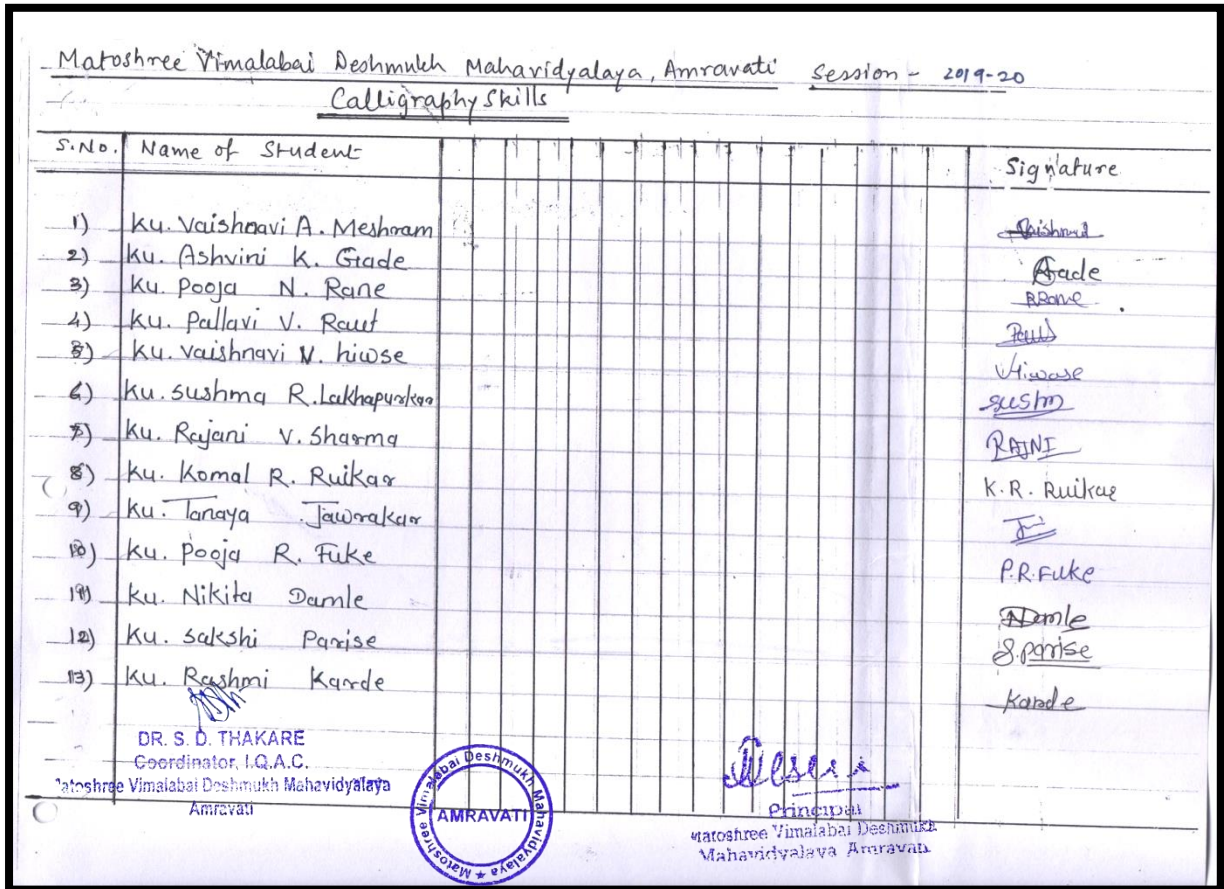 Matoshree Vimalabai Deshmukh Mahavidyalaya, Amravati Session - 2019-20
Calligraphy Skills
S.No. Name of Student Signature
1) Ku. Vaishnavi A. Meshram
2) Ku. Ashvini K. Gade Gade
3) Ku. Pooja N. Rane
4) Ku. Pallavi V. Raut
5) Ku. Vaishnavi V. hiwse VHiwase
6) Ku. Sushma R. Lakhapurkar sushm
7) Ku. Rajani V. Sharma RAJNI
8) Ku. Komal R. Ruikar K.R. Ruikar
9) Ku. Tanaya Jawrakar
10) Ku. Pooja R. Fuke P.R.Fuke
11) Ku. Nikita Damle
12) Ku. Sakshi Parise S.parise
13) Ku. Rashmi Karde Karde
DR. S. D. THAKARE
Coordinator, I.Q.A.C.
Matoshree Vimalabai Deshmukh Mahavidyalaya
Amravati
Matoshree Vimalabai Deshmukh Mahavidyalaya
AMRAVATI
Principal
Matoshree Vimalabai Deshmukh
Mahavidyalaya Amravati